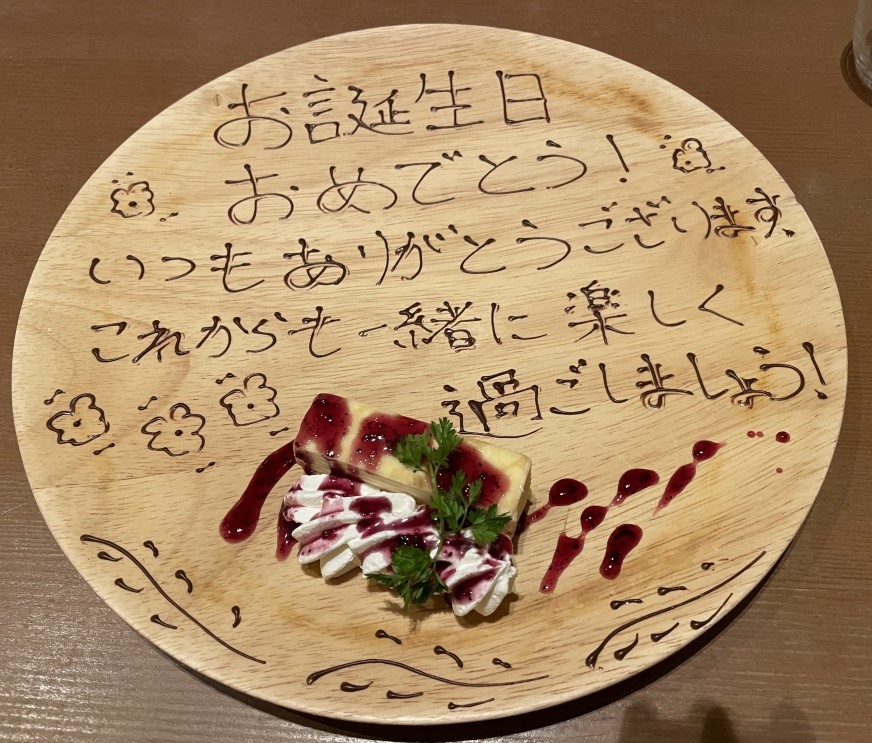 お誕生日
おめでとう!
いつもありがとうございます
これからも一緒に楽しく
過ごしましょう!